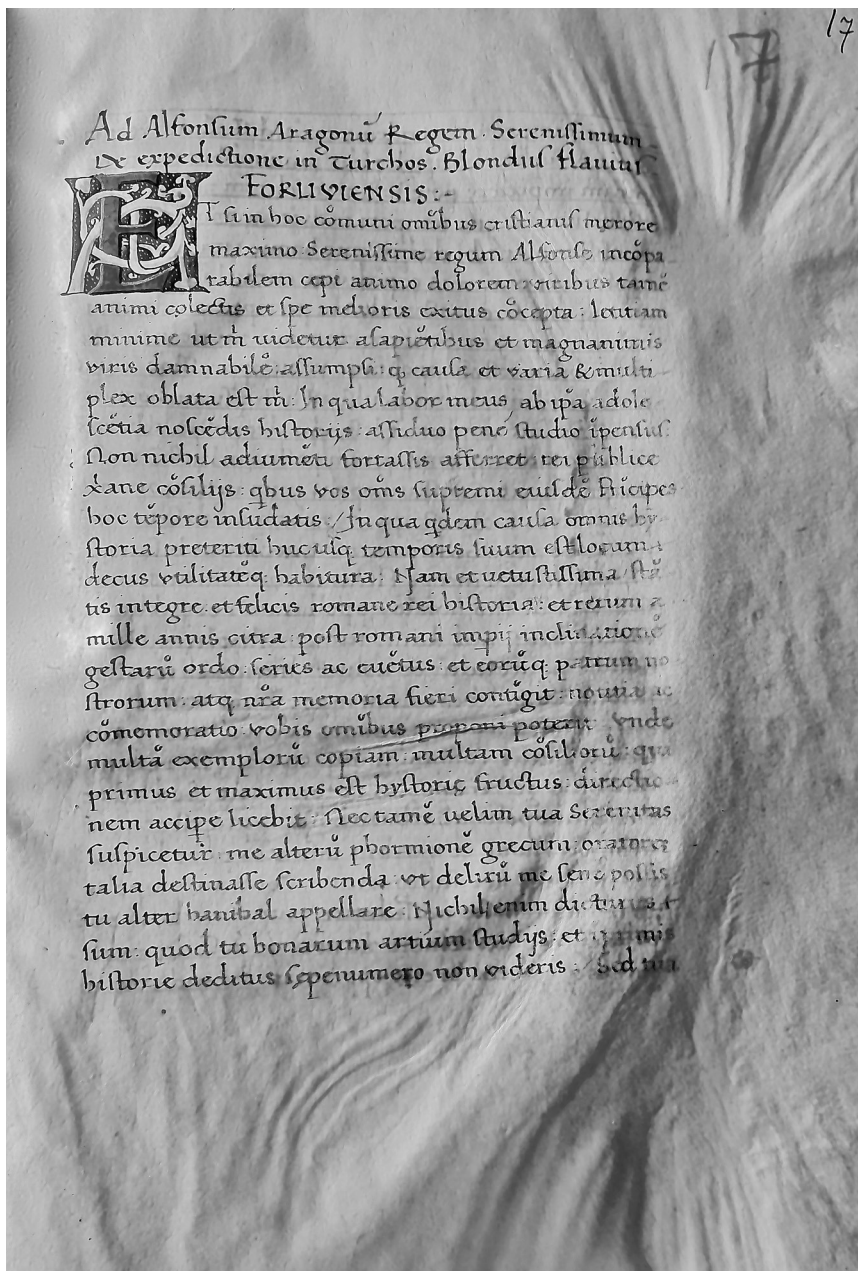 17
17
Ad Alfonsum Aragonū Regem Serenissimum
De expedictione in Turchos. Blondus flavius
FORLIVIENSIS:-
ETsi in hoc cōmuni omībus cristianis merore
maximo Serenissime regum Alfonse incōpa
rabilem cepi animo dolorem: viribus tamē
animi colectis et spe melioris exitus cōcepta: letitiam
minime ut m̄ uidetur asapiētibus et magnanimis
viris damnabilē: assumpsi: q causa et varia & multi
plex oblata est m̄: In qua labor meus ab ip̄a adole
scētia noscēdis historijs assiduo pene studio īpensus
Non nichil adiumēti fortassis afferret rei publice
xāne cōsilijs: qbus vos om̄s supremi eiusdē Prīcipes
hoc tēpore insudatis. In qua qdem causa omnis hy
storia preteriti hucusq temporis suum est locum
decus vtilitatēq habitura: Nam et uetustissima stā
tis integre et felicis romane rei historia: et rerum a
mille annis citra post romani impij inclinationē
gestarū ordo series ac euētus: et eorūq patrum no
strorum: atq nr̄a memoria fieri contigit: notitia ac
cōmemoratio vobis omībus proponi poterit vnde
multā exemplorū copiam: multam cōsiliorū: qui
primus et maximus est hystorię fructus: directio
nem accipe licebit: Nec tamē uelim tua Serenitas
suspicetur me alterū phormionē grecum: oratorē
talia destinasse scribenda vt delirū me senē possis
tu alter hanibal appellare: Nichil enim dicturus
sum: quod tu bonarum artium studijs: et
historie deditus sępenumero non videris: Sed tua